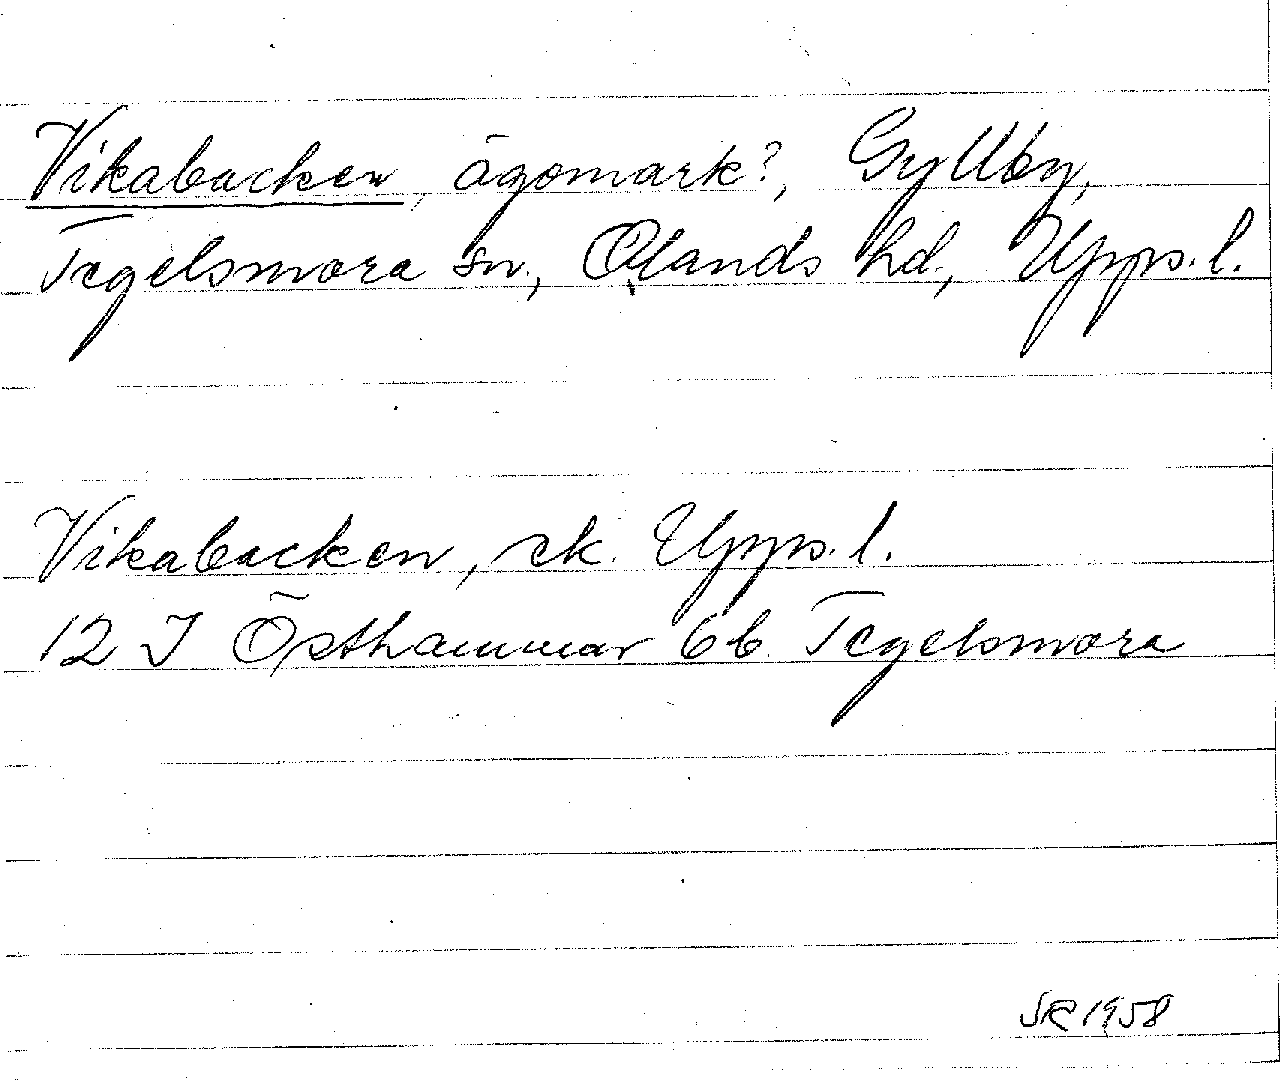 Vikabacken, ägomark?, Gyllby,
Tegelsmora sn., Olands hd., Upps. l.
Vikabacken, ek. Upps. l.
12 I Östhammar 6b Tegelsmora
SR 1958